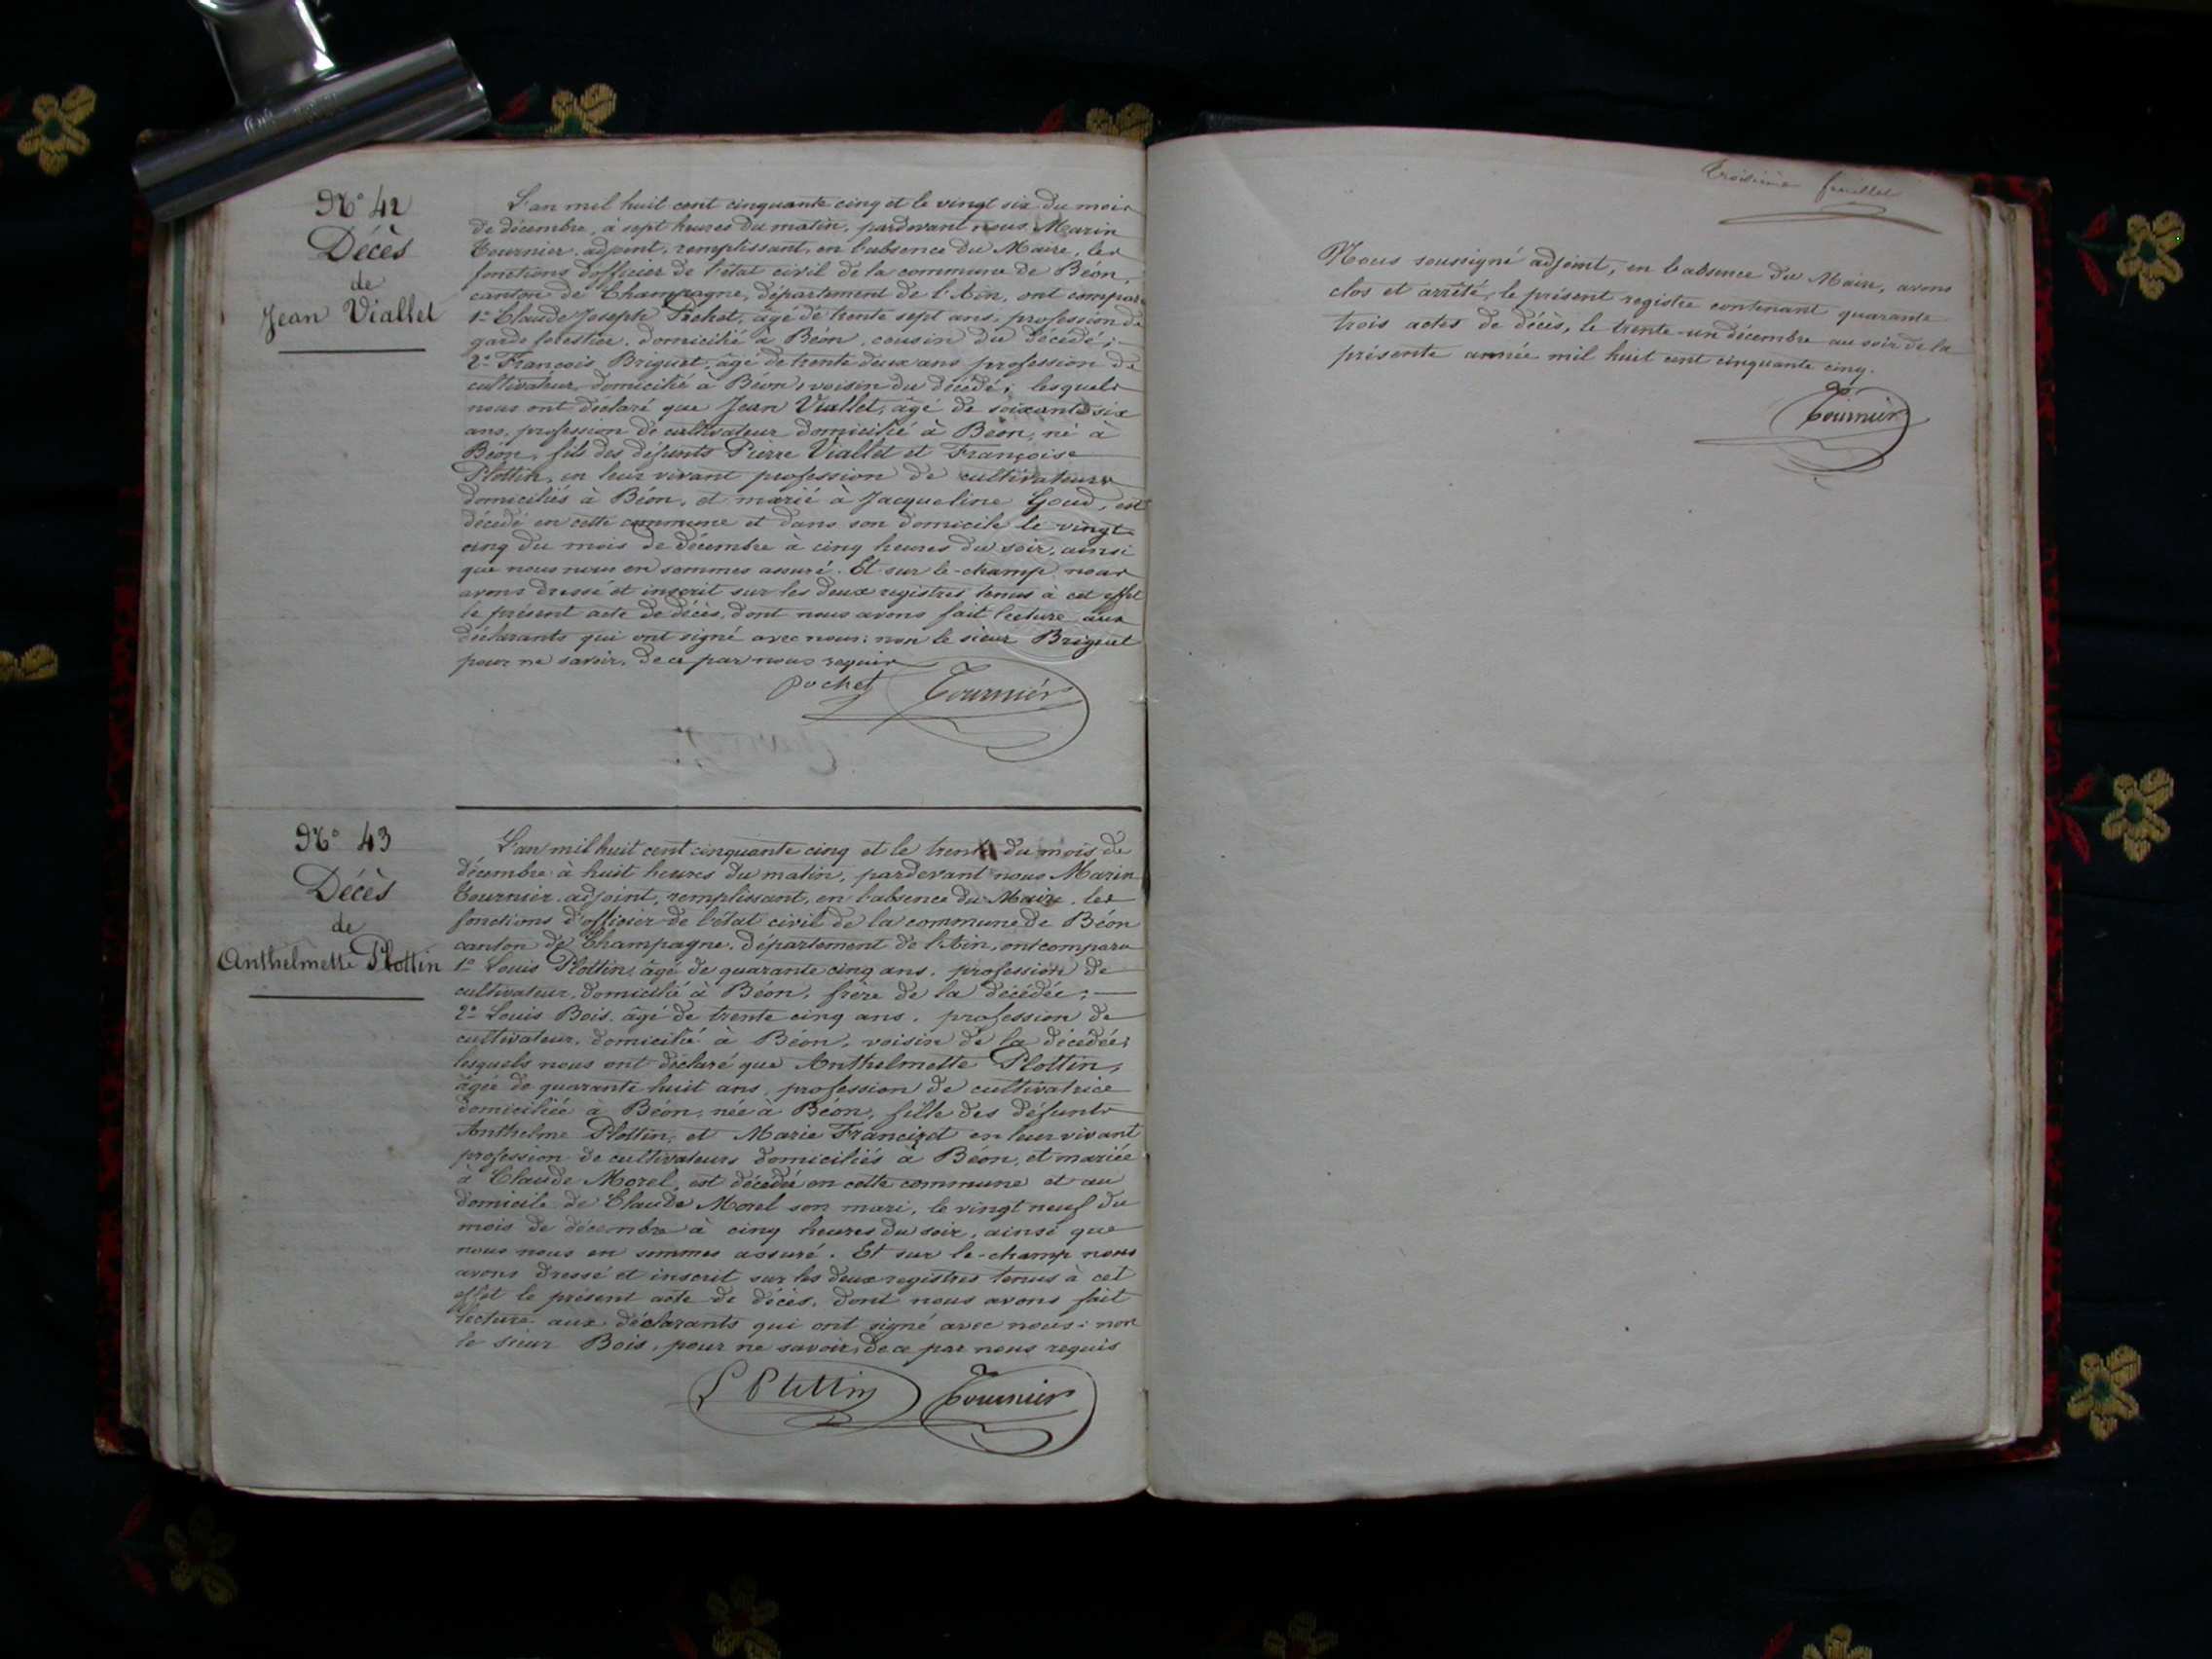 N° 42
Décès
de
Jean Viallet
L'an mil huit cent cinquante cinq et le vingt six du mois
de décembre, à sept heures du matin, pardevant nous Marin
Tournier, adjoint, remplissant, en l'absence du Maire, les
fonctions d'officier de l'état civil de la commune de Béon
canton de Champagne, département de l'Ain, ont comparu
1° Claude Joseph Pochet, âgé de trente sept ans, profession de
garde forestier, domicilié à Béon, cousin du décédé;
2° François Briguet, âgé de trente deux ans profession de
cultivateur domicilié à Béon, voisin du décédé; lesquels
nous ont déclaré que Jean Viallet, âgé de soixante six
ans, profession de cultivateur domicilié à Béon, né à
Béon, fils des défunts Pierre Viallet et Françoise
Plottin, en leur vivant profession de cultivateurs
domiciliés à Béon, et marié à Jacqueline Goud, est
décédé en cette commune et dans son domicile le vingt
cinq du mois de décembre à cinq heures du soir, ainsi
que nous nous en sommes assuré. Et sur le-champ nous
avons dressé et inscrit sur les deux registres tenus à cet effet
le présent acte de décès, dont nous avons fait lecture aux
déclarants qui ont signé avec nous; non le sieur Briguet
pour ne savoir, de ce par nous requis
Pochet Tournier
N° 43
Décès
de
Anthelmette Plottin
L'an mil huit cent cinquante cinq et le trente du mois de
décembre à huit heures du matin, pardevant nous Marin
Tournier adjoint, remplissant, en l'absence du Maire, les
fonctions d'officier de l'état civil de la commune de Béon
canton de Champagne, département de l'Ain, ont comparu
1° Louis Plottin, âgé de quarante cinq ans, profession de
cultivateur, domicilié à Béon, frère de la décédée;
2° Louis Bois, âgé de trente cinq ans, profession de
cultivateur, domicilié à Béon, voisin de la décédée;
lesquels nous ont déclaré que Anthelmette Plottin,
âgée de quarante huit ans, profession de cultivatrice
domiciliée à Béon, née à Béon, fille des défunts
Anthelme Plottin, et Marie Francizot en leur vivant
profession de cultivateurs domiciliés à Béon, et mariée
à Claude Morel, est décédée en cette commune et au
domicile de Claude Morel son mari, le vingt neuf du
mois de décembre à cinq heures du soir, ainsi que
nous nous en sommes assuré. Et sur le-champ nous
avons dressé et inscrit sur les deux registres tenus à cet
effet le présent acte de décès, dont nous avons fait
lecture aux déclarants qui ont signé avec nous; non
le sieur Bois, pour ne savoir, de ce par nous requis
L Plottin Tournier
troisième feuillet
Nous soussigné adjoint, en l'absence du Maire, avons
clos et arrêté, le présent registre contenant quarante
trois actes de décès, le trente-un décembre au soir de la
présente année mil huit cent cinquante cinq.
Tournier